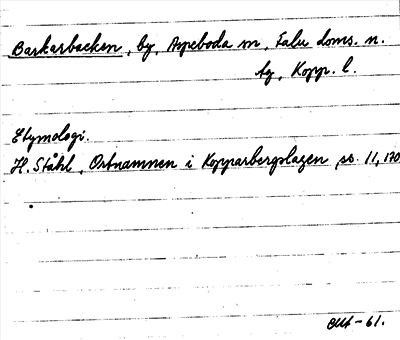 Barkarbacken, by, Aspeboda sn, Falu doms. n.
tg, Kopp. l.
Etymologi.
H. Ståhl, Ortnamnen i Kopparbergslagen, ss. 11, 170
-61.